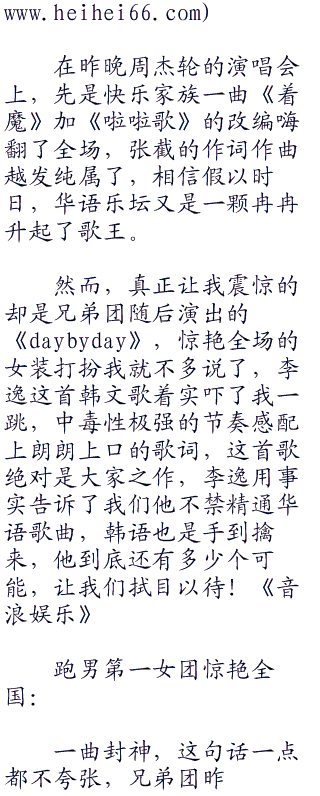 www.heihei66.com)
在昨晚周杰轮的演唱会
上，先是快乐家族一曲《着
魔》加《啦啦歌》的改编嗨
翻了全场，张截的作词作曲
越发纯属了，相信假以时
日，华语乐坛又是一颗冉冉
升起了歌王。
然而，真正让我震惊的
却是兄弟团随后演出的
《daybyday》，惊艳全场的
女装打扮我就不多说了，李
逸这首韩文歌着实吓了我一
跳，中毒性极强的节奏感配
上朗朗上口的歌词，这首歌
绝对是大家之作，李逸用事
实告诉了我们他不禁精通华
语歌曲，韩语也是手到擒
来，他到底还有多少个可
能，让我们拭目以待！《音
浪娱乐》
跑男第一女团惊艳全
国：
一曲封神，这句话一点
都不夸张，兄弟团昨